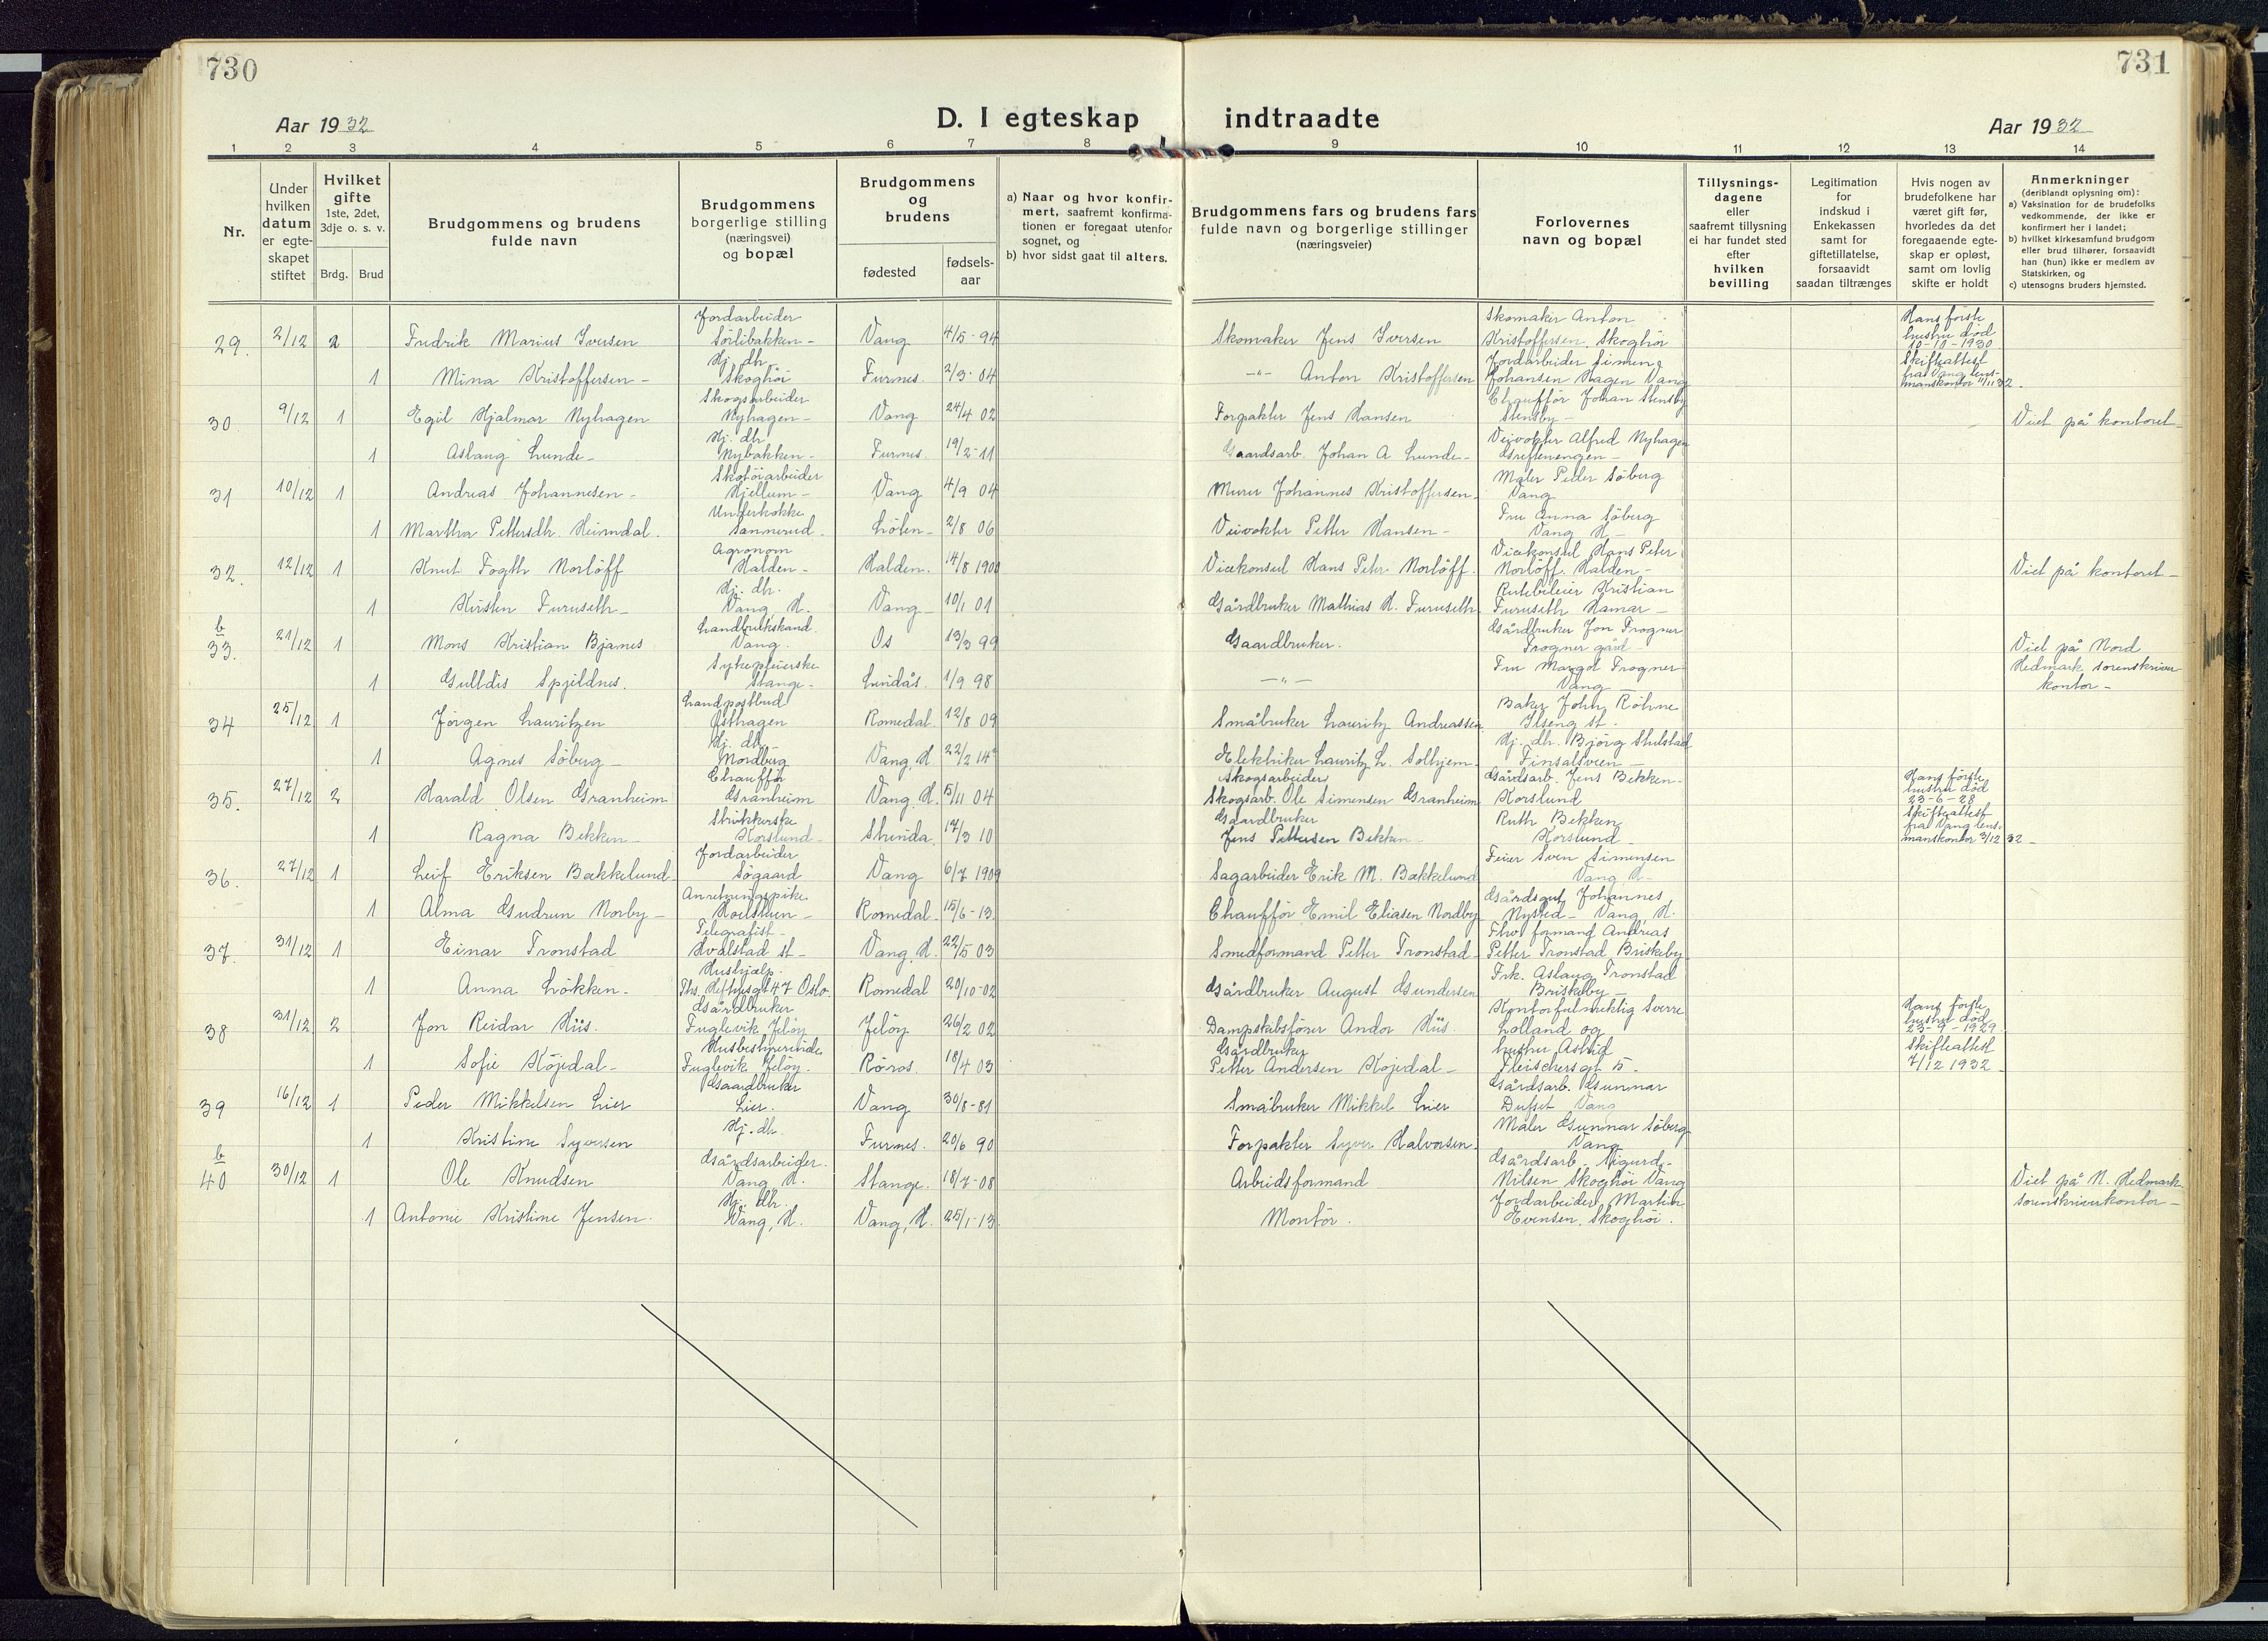 730
731
D. I egteskap indtraadte
Aar 1932
Aar 1932
1 2 3 4 5 6 7 8 9 10 11 12 13 14
Nr.
Under hvilken datum er egteskapet stiftet
Hvilket gifte 1ste, 2det, 3dje o. s. v.
Brdg. Brud
Brudgommens og brudens fulde navn
Brudgommens borgerlige stilling (næringsvei) og bopæl
Brudgommens og brudens
fødested fødselsaar
a) Naar og hvor konfirmert, saafremt konfirmationen er foregaat utenfor sognet, og
b) hvor sidst gaat til alters.
Brudgommens fars og brudens fars fulde navn og borgerlige stillinger (næringsveier)
Forlovernes navn og bopæl
Tillysningsdagene eller saafremt tillysning ei har fundet sted efter hvilken bevilling
Legitimation for indskud i Enkekassen samt for giftetillatelse, forsaavidt saadan tiltrænges
Hvis nogen av brudefolkene har været gift før, hvorledes da det foregaaende egteskap er opløst, samt om lovlig skifte er holdt
Anmerkninger (deriblandt oplysning om):
a) Vaksination for de brudefolks vedkommende, der ikke er konfirmert her i landet;
b) hvilket kirkesamfund brudgom eller brud tilhører, forsaavidt han (hun) ikke er medlem av Statskirken, og
c) utensogns bruders hjemsted.
29. 2/12 2 Fredrik Marius Iversen Jordarbeider Sørlibakken - Vang 4/5-94 Skomaker Jens Iversen Skomaker Anton Kristoffersen, Skoghøi Hans første hustru død 10-10-1930
1 Mina Kristoffersen - Hj. dtr. Skoghøi Furnes. 2/3-04 -"- Anton Kristoffersen Jordarbeider Simen Johansen Hagen Vang Skifteattest fra Vang lensmanskontor 11/11 32.
30. 9/12 1 Egil Hjalmar Nyhagen Skogsarbeider Nyhagen - Vang 24/4 02 Forpakter Jens Hansen Chauffør Johan Stensby Stensby - Viet på kontoret -
1 Aslaug Lunde - Hj. dtr. Nybakken - Furnes. 19/2-11 Gaardsarb. Johan A Lunde - Veivokter Alfred Nyhagen
31 10/12 1 Andreas Johannesen - Skotøiarbeider Hjellum - Vang 4/9 04 Murer Johannes Kristoffersen. Maler Peder Søberg Vang
1 Martha Pettersdtr. Heimdal. Underkokke Sannerud. Løten - 2/8 06 Veivokter Petter Hansen - Fru Anna Søberg Vang H -
32. 12/12 1 Knut Fogth Norløff Agronom Halden - Halden. 14/8 1900 Vicekonsul Hans Peter Norløff. Vicekonsul Hans Peter Norløff. Halden - Viet på kontoret -
1 Kirsten Furuseth - Hj. dtr. Vang, H. Vang - 10/1 01 Gårdbruker Mathias H. Furuseth Rutebileier Kristian Furuseth Hamar -
b
33. 21/12 1 Mons Kristian Bjanes Landbrukskand. Vang. Os 13/3 99 Gaardbruker. Gårdbruker Jon Frogner Frogner gård - Viet på Nord
1 Gulldis Spjeldnes. Sykepleierske Stange - Lindås. 1/9 98 -"- Fru Margot Frogner Vang - Hedmark sorenskriver kontor -
34 25/12 1 Jørgen Lauritzen Landpostbud Østhagen Romedal. 12/8 09 Småbruker Lauritz Andreassen Baker John Røhne Ilseng st -
1 Agnes Søberg - Hj. dtr. Nordberg Vang, H 22/2 14 Elektriker Lauritz L. Solhjem. Hj. dtr. Bjørg Finsalsveien -
35. 27/12 2 Harald Olsen Granheim Chauffør Granheim Vang, H. 5/11 04 Skogsarbeider Skogsarb. Ole Simensen Granheim Gårdsarb. Jens Bekken - Korslund Hans første hustru død 23-6-28
1 Ragna Bekken - Strikkerske Korslund - 17/3 10 Gaardbruker Jens Pettersen Bekken - Ruth Bekken Korslund - Skifteattest fra Vang lensmanskontor 3/12 32 -
36. 27/12 1 Leif Eriksen Bækkelund. Jordarbeider Søgaard Vang 6/7 1909 Sagarbeider Erik M. Bækkelund Feier Sven Simensen Vang H -
1 Alma Gudrun Norby - Anretningspike Romedal. 15/6-13. Chauffør Emil Eliasen Nordby Gårdsgut Johannes Nysted - Vang, H.
37. 31/12 1 Einar Tronstad Telegrafist - Hvalstad st - Vang, H. 22/5 03 Smedformand Petter Tronstad - formand Andreas Petter Tronstad Briskeby
1 Anna Løkken - Hushjælp. Ths. Heftyesgt 47 Oslo. Romedal 20/10-02 Gårdbruker August Gundersen Frk. Aslaug Tronstad Briskeby -
38 31/12 2 Jon Reidar Hiis. Gårdbruker Fuglevik Jeløy Jeløy 26/2 02 Dampskibsfører Andor Hiis. Kontorfulmektig Sverre Lolland og Hans første hustru død 23-9-1929
1 Sofie Kojedal - Husbestyrerinde Fuglevik Jeløy. Røros. 18/4 03 Gårdbruker Petter Andersen Kojedal - hustru Astrid Fleischersgt 5 - Skifteattest 7/12 1932 -
39 16/12 1 Peder Mikkelsen Lier Gaardbruker Lier. Vang 30/8-81 Småbruker Mikkel Lier Gårdsarb. Gunnar Dufset Vang
1 Kristine Syversen Hj. dtr. Furnes. 20/6 90 Forpakter Syver Halvorsen. Maler Gunnar Søberg Vang
b
40 30/12 1 Ole Knudsen Gårdsarbeider. Vang H. Stange. 18/7-08 Arbeidsformand Gårdsarb. Sigurd Nilsen Skoghøi Vang Viet på N. Hedmark
1 Antonie Kristine Jensen. Hj. dtr. Vang, H. Vang, H. 25/1-13. Montør. Jordarbeider Martin Evensen, Skoghøi. sorenskriverkontor -